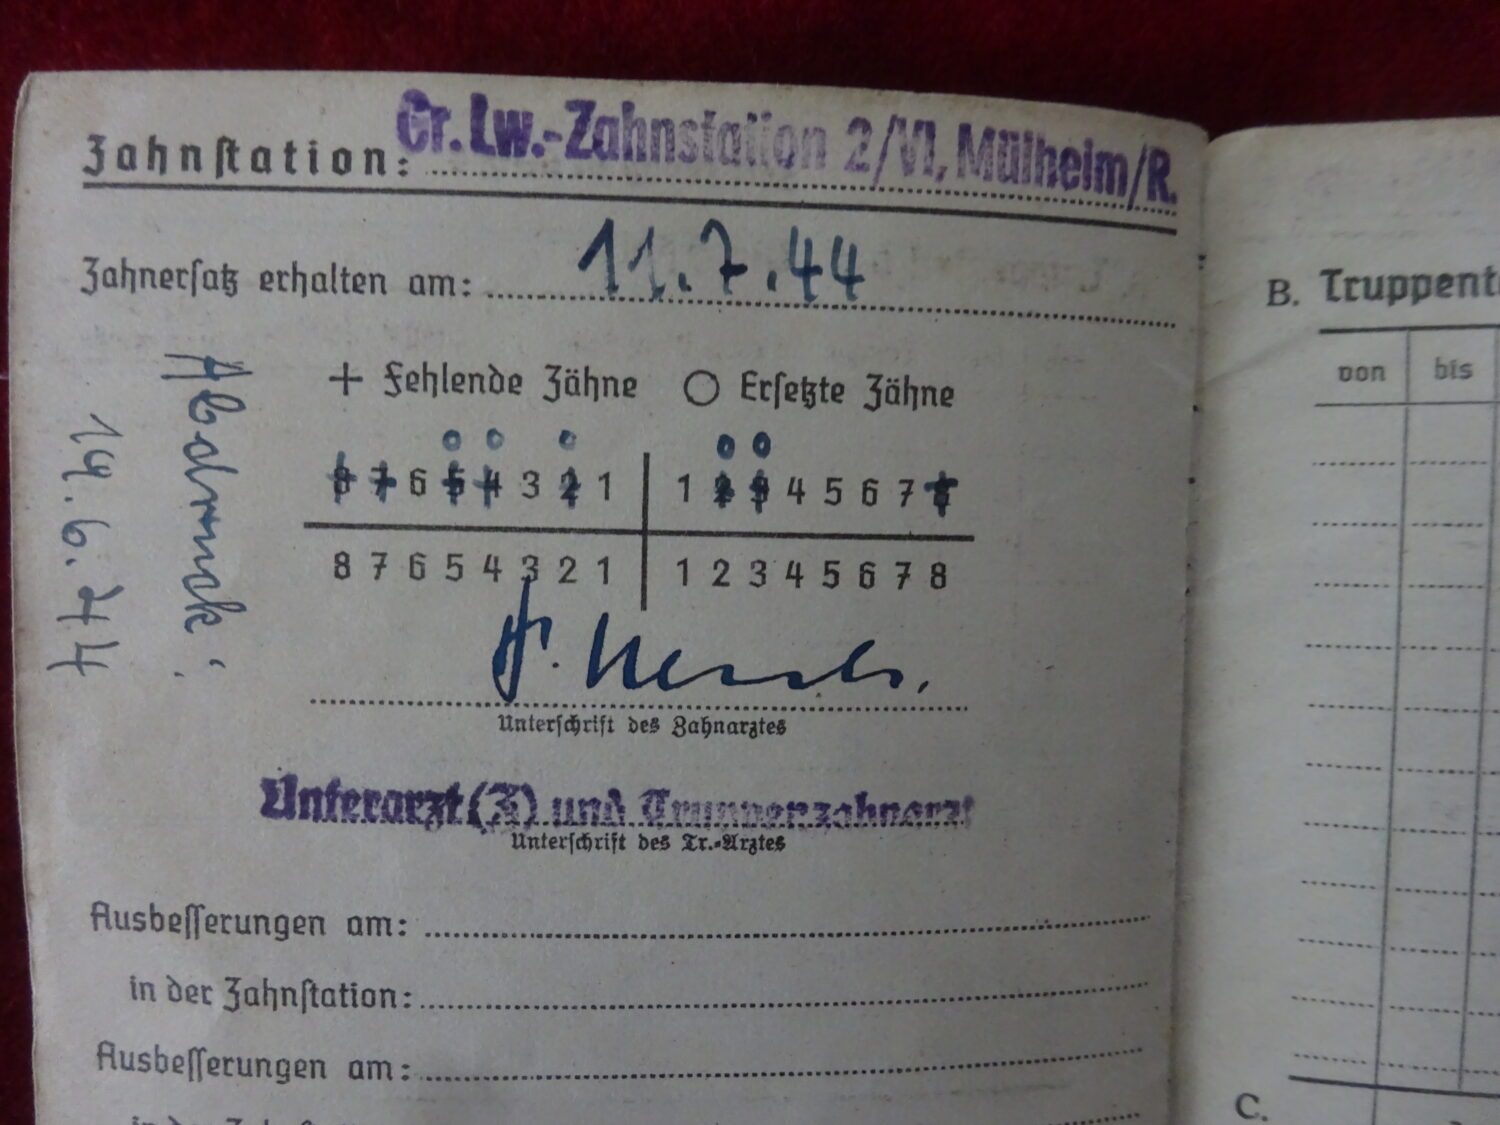 Zahnstation: Gr. Lw.-Zahnstation 2/VI, Mülheim/R.
Zahnersatz erhalten am: 11.7.44
+ Fehlende Zähne ○ Ersetzte Zähne
8 7 6 5 4 3 2 1 | 1 2 3 4 5 6 7 8
8 7 6 5 4 3 2 1 | 1 2 3 4 5 6 7 8
Unterschrift des Zahnarztes
Unterarzt (Z) und Truppenzahnarzt
Unterschrift des Tr.-Arztes
Ausbesserungen am:
in der Zahnstation:
Ausbesserungen am:
in der
Abdruck
19.6.44
B. Truppent
von bis
C.